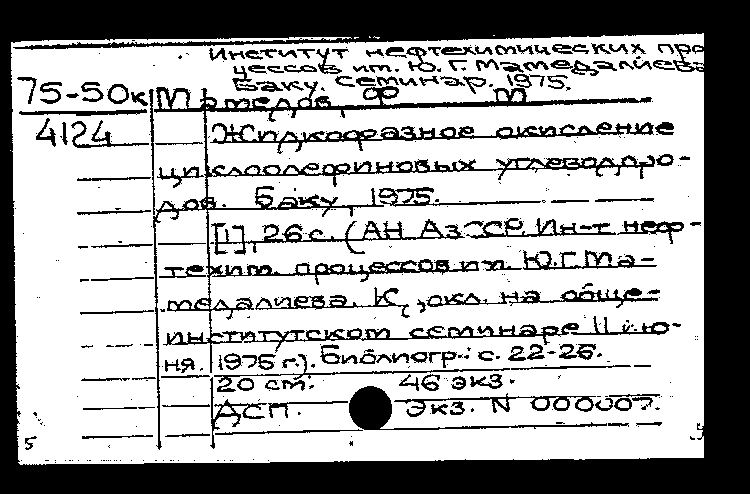 Институт нефтехимических про
цессов им. Ю.Г. Мамедалиева
Баку. Семинар. 1975.
75-50к Мамедов, Ф М
4124 Жидкофазное окисление
циклоолефиновых углеводоро-
дов. Баку, 1975.
[1], 26 с. (АН АзССР. Ин-т неф-
техим. процессов им. Ю.Г. Ма-
медалиева. К докл. на обще-
институтском семинаре 11 ию-
ня. 1975 г.). Библиогр.: с. 22-26.
20 см. 46 экз.
ДСП. Экз. N 000007.
5